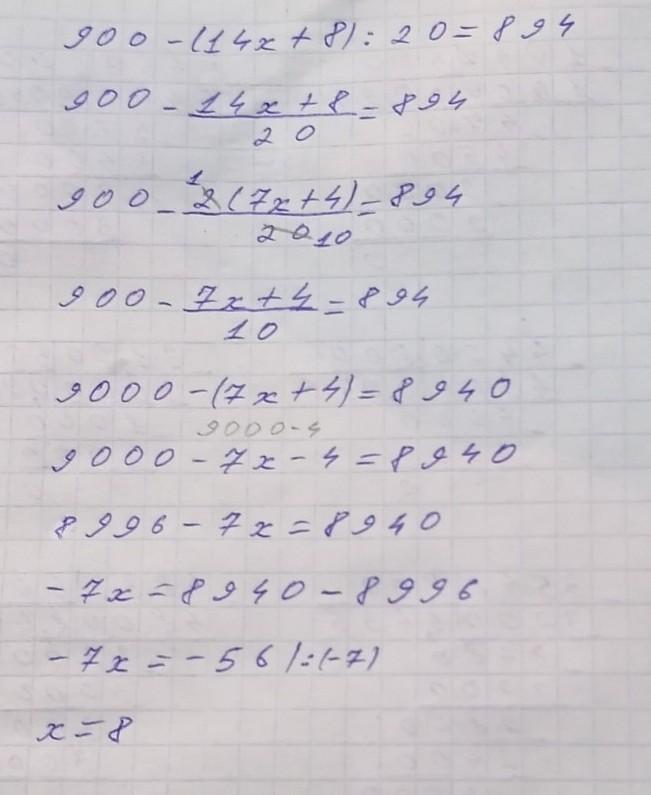 900-(14x+8):20=894
900-14x+8/20=894
900-¹2(7x+4)/20 10=894
900-7x+4/10=894
9000-(7x+4)=8940
9000-4
9000-7x-4=8940
8996-7x=8940
-7x=8940-8996
-7x=-56/:(-7)
x=8